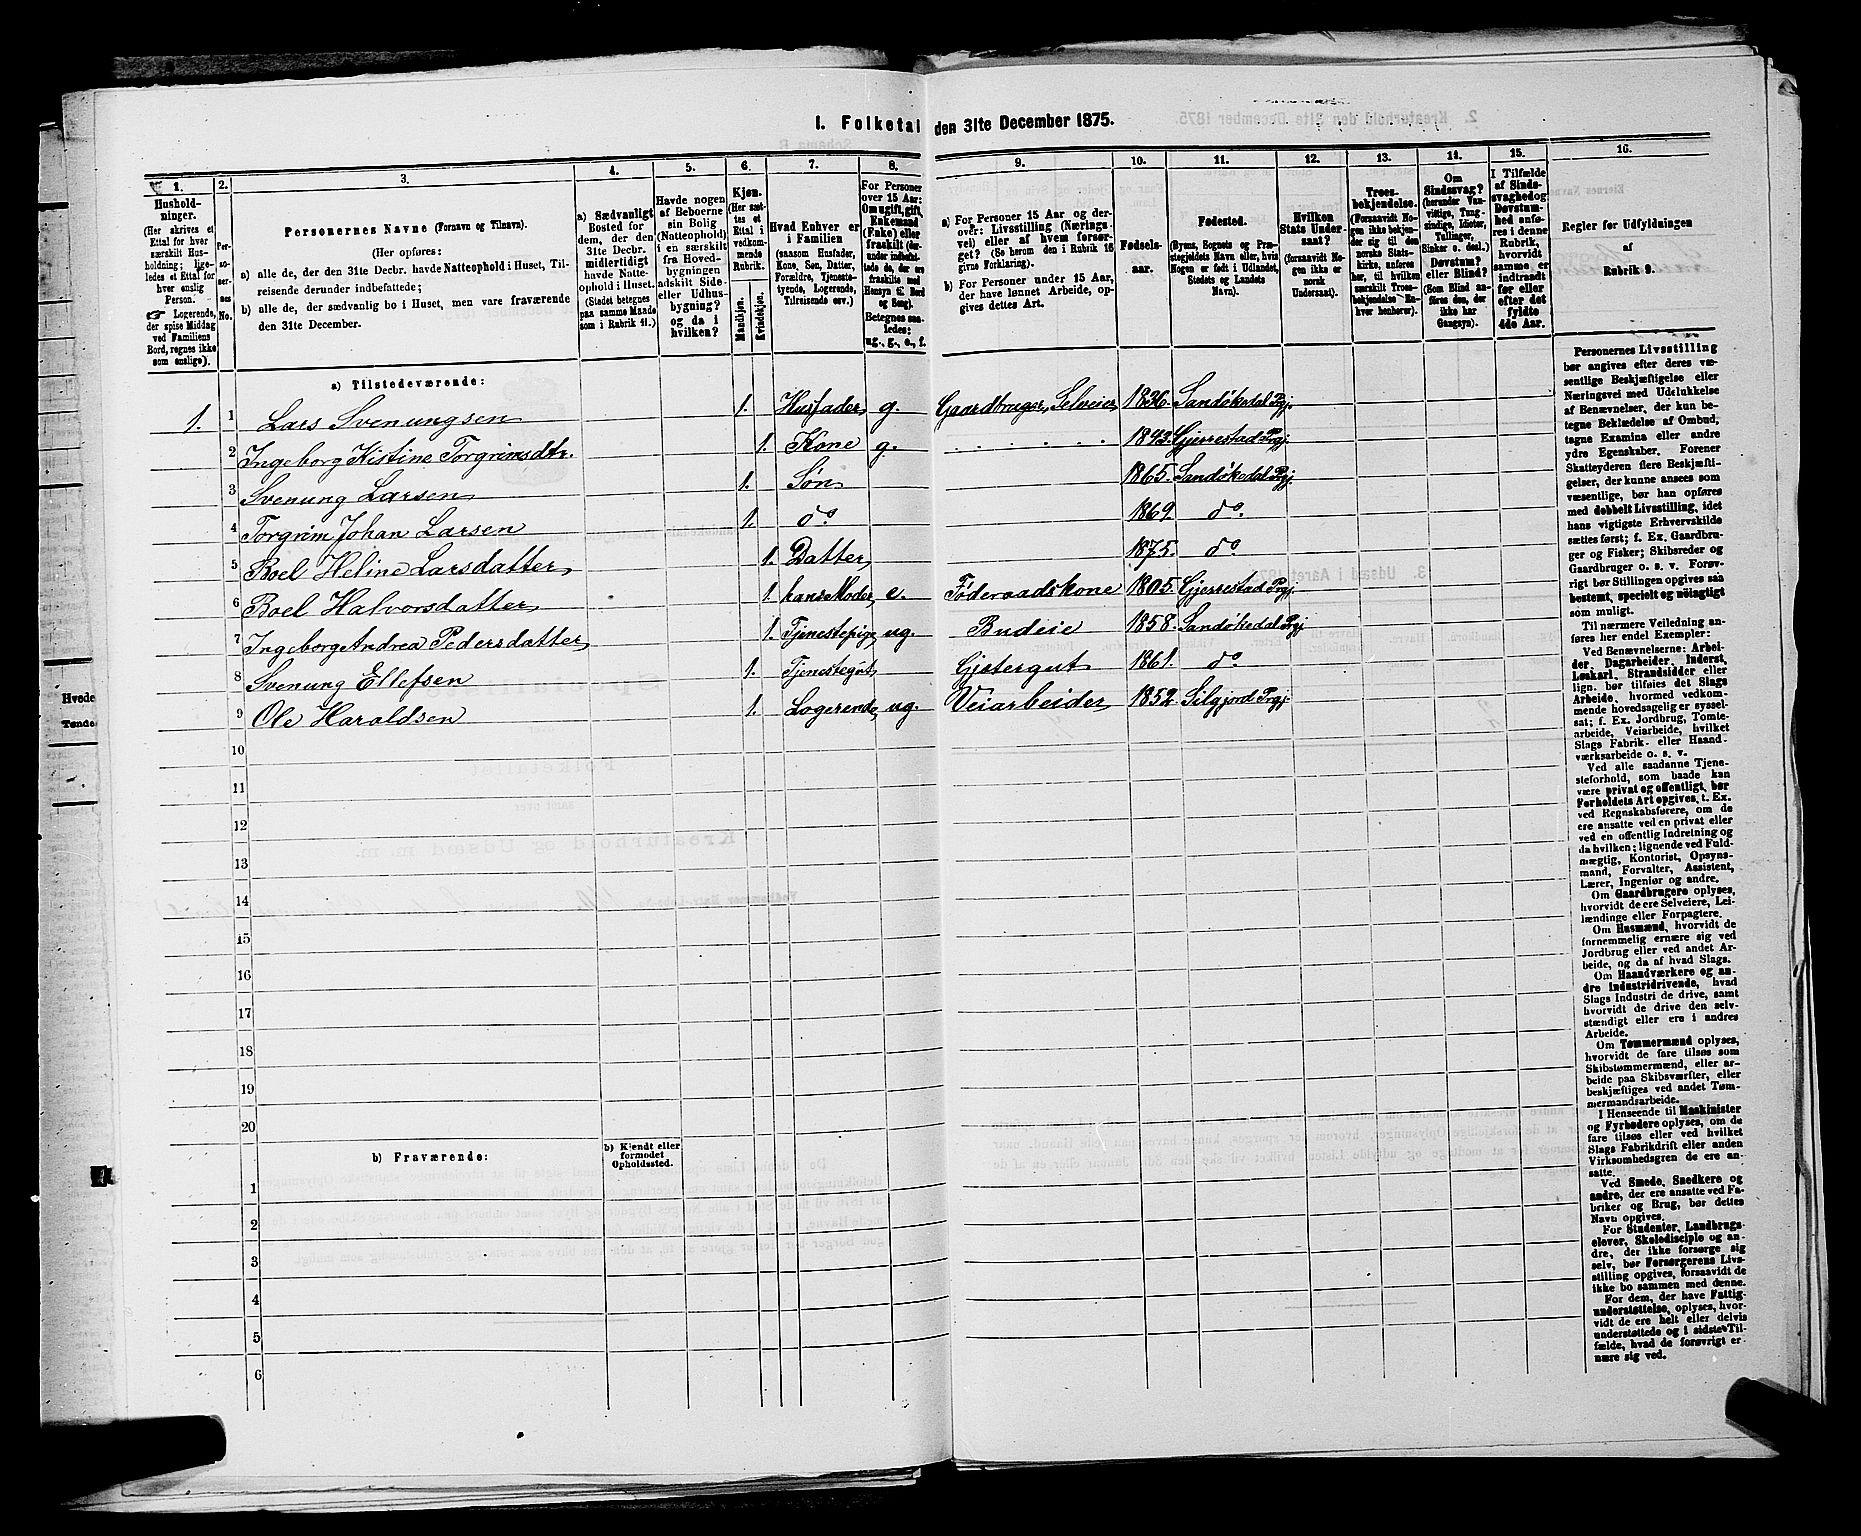 I. Folketal den 31te December 1875.
1.
Hushold-
ninger.
(Her skrives et
Ettal for hver
særskilt Hus-
holdning; lige-
ledes et Ettal for
hver enslig
Person.
☞ Logerende,
der spise Middag
ved Familiens
Bord, regnes ikke
som enslige).
2.
Per-
so-
ner-
nes
No.
3.
Personernes Navne (Fornavn og Tilnavn).
(Her opføres:
a) alle de, der den 31te Decbr. havde Natteophold i Huset, Til-
reisende derunder indbefattede;
b) alle de, der sædvanlig bo i Huset, men vare fraværende
den 31te December.
4.
a) Sædvanligt
Bosted for
dem, der den
31te Decbr.
midlertidigt
havde Natte-
ophold i Huset.
(Stedet betegnes
paa samme Maade
som i Rubrik 11.)
5.
Havde nogen
af Beboerne
sin Bolig
(Natteophold)
i en særskilt
fra Hoved-
bygningen
adskilt Side-
eller Udhus-
bygning?
og da i
hvilken?
6.
Kjøn.
(Her sæt-
tes et
Ettal i
vedkom-
mende
Rubrik.
Mandkjøn.
Kvindekjøn.
7.
Hvad Enhver er
i Familien
(saasom Husfader,
Kone, Søn, Datter,
Forældre, Tjeneste-
tyende, Logerende,
Tilreisende osv.)
8.
For Personer
over 15 Aar:
Om ugift, gift,
Enkemand
(Enke) eller
fraskilt (der-
under indbefat-
tede de, der ere
fraskilte med
Hensyn til Bord
og Seng).
Betegnes saa-
ledes:
ug., g., e., f.
9.
a) For Personer 15 Aar og der-
over: Livsstilling (Nærings-
vei) eller af hvem forsør-
get? (Se herom den i Rubrik 16
givne Forklaring).
b) For Personer under 15 Aar,
der have lønnet Arbeide, op-
gives dettes Art.
10.
Fødsels-
aar.
11.
Fødested.
(Byens, Sognets og Præ-
stegjeldets Navn, eller, hvis
Nogen er født i Udlandet,
Stedets og Landets
Navn).
12.
Hvilken
Stats Under-
saat?
(forsaavidt No-
gen ikke er
norsk
Undersaat).
13.
Troes-
bekjendelse.
(Forsaavidt No-
gen ikke bekjen-
der sig til den
norske Stats-
kirke, anføres
her, til hvilken
særskilt Troes-
bekjendelse En-
hver henhører).
14.
Om
Sindssvag?
(herunder Van-
vittige, Tung-
sindige, Idioter,
Tullinger,
Sinker o. desl.)
Døvstum?
eller Blind?
(Som Blind an-
føres den, der
ikke har
Gangsyn).
15.
I Tilfælde
af Sinds-
svaghed og
Døvstum-
hed anfø-
res i denne
Rubrik,
hvorvidt
samme er
indtraadt
før eller
efter det
fyldte
4de Aar.
16.
Regler for Udfyldningen
af
Rubrik 9.
a) Tilstedeværende:
1. 1 Lars Svenungsen 1. Husfader g. Gaardbruger, Selveier 1836. Sandøkedal Prgj.
2 Ingeborg Kistine Torgrimsdtr. 1. Kone g. 1843. Gjerrestad Prgj.
3 Svenung Larsen 1. Søn 1865. Sandøkedal Prgj
4 Torgrim Johan Larsen 1. do. 1869. do.
5 Boel Heline Larsdatter 1. Datter 1875. do
6 Boel Halvorsdatter 1. hans Moder e. Føderaadskone 1805. Gjerrestad Prgj.
7 Ingeborg Andrea Pedersdatter 1. Tjenestepige ug. Budeie 1858. Sandøkedal Prgj
8 Svenung Ellefsen 1. Tjenestegut Gjetergut 1861. do
9 Ole Haraldsen 1. Logerende ug. Veiarbeider 1852. Silgjord Prgj.
10
11
12
13
14
15
16
17
18
19
20
b) Fraværende:
b) Kjendt eller
formodet
Opholdssted.
1
2
3
4
5
6
Personernes Livsstilling
bør angives efter deres væ-
sentlige Beskjæftigelse eller
Næringsvei med Udelukkelse
af Benævnelser, der kun be-
tegne Beklædelse af Ombud,
tagne Examina eller andre
ydre Egenskaber. Forener
Skatteyderen flere Beskjæfti-
gelser, der kunne ansees som
væsentlige, bør han opføres
med dobbelt Livsstilling, idet
hans vigtigste Erhvervskilde
sættes først; f. Ex. Gaardbru-
ger og Fisker; Skibsreder og
Gaardbruger o. s. v. Forøv-
rigt bør Stillingen opgives saa
bestemt, specielt og nøiagtigt
som muligt.
Til nærmere Veiledning an-
føres her endel Exempler:
Ved Benævnelserne: Arbei-
der, Dagarbeider, Inderst,
Løskarl, Strandsidder eller
lign. bør tilføies det Slags
Arbeide, hvormed vedkom-
mende hovedsagelig er syssel-
sat; f. Ex. Jordbrug, Tomte-
arbeide, Veiarbeide, hvilket
Slags Fabrik- eller Haand-
værksarbeide o. s. v.
Ved alle saadanne Tjene-
steforhold, som baade kan
være privat og offentligt, bør
Forholdets Art opgives, t. Ex.
ved Regnskabsførere, om de
ere ansatte ved en privat eller
ved en offentlig Indretning og
da hvilken; lignende ved Fuld-
mægtig, Kontorist, Opsyns-
mand, Forvalter, Assistent,
Lærer, Ingeniør og andre.
Om Gaardbrugere oplyses,
hvorvidt de ere Selveiere, Lei-
lændinge eller Forpagtere.
Om Husmænd, hvorvidt de
fornemmelig ernære sig ved
Jordbrug eller ved andet Ar-
beide, og da af hvad Slags.
Om Haandværkere og an-
dre Industridrivende, hvad
Slags Industri de drive, samt
hvorvidt de drive den selv-
stændigt eller ere i andres
Arbeide.
Om Tømmermænd oplyses,
hvorvidt de fare tilsøs som
Skibstømmermænd, eller ar-
beide paa Skibsværfter, eller
beskjæftiges ved andet Tøm-
mermandsarbeide.
I Henseende til Maskinister
og Fyrbødere oplyses, om de
fare tilsøs eller ved hvilket
Slags Fabrikdrift eller anden
Virksomhedsgren de ere an-
satte.
Ved Smede, Snedkere og
andre, der ere ansatte ved Fa-
briker og Brug, bør dettes
Navn opgives.
For Studenter, Landbrugs-
elever, Skoledisciple og an-
dre, der ikke forsørge sig
selv, bør Forsørgerens Livs-
stilling opgives, forsaavidt de
ikke bo sammen med denne.
For dem, der have Fattig-
understøttelse, oplyses, hvor-
vidt de ere helt eller delvis
understøttede og i sidste Til-
fælde, hvad de forøvrigt er-
nære sig ved.
Hvede
Tønder